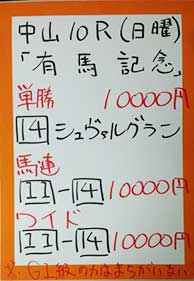 中山10R(日曜)
「有馬記念」
単勝 10000円
14 シュヴァルグラン
馬連
11-14 10000円
ワイド
11-14 10000円
※.GI級の力はまちがいない